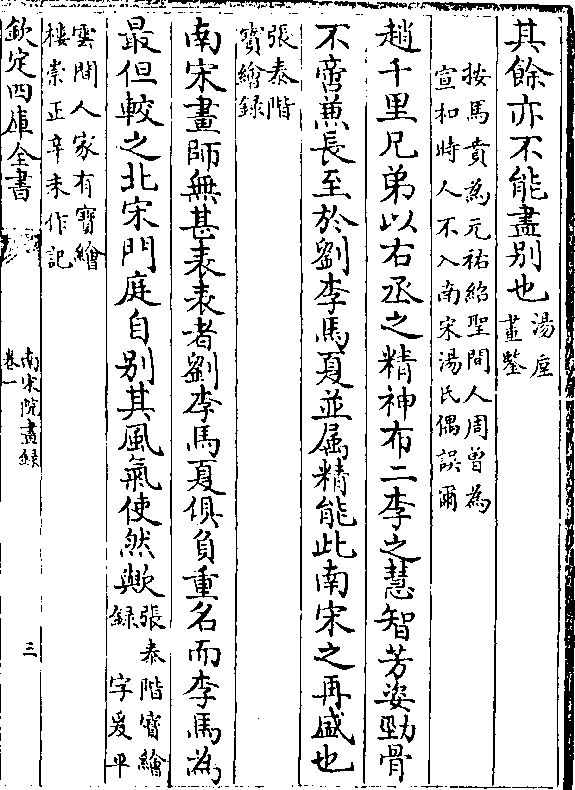 其餘亦不能盡别也湯垕
畫鑒
按馬賁為元祐紹聖間人周曾為
宣和時人不入南宋湯氏偶誤爾
趙千里兄弟以右丞之精神布二李之慧智芳姿勁骨
不啻兼長至於劉李馬夏並属精能此南宋之再盛也
張泰階
寳繪録
南宋畫師無甚表表者劉李馬夏俱負重名而李馬為
最但較之北宋門庭自别其風氣使然歟張泰階寳繪
録 字爰平
雲間人家有寳繪
樓崇正辛未作記
欽定四庫全書
南宋院畫録
卷一
三